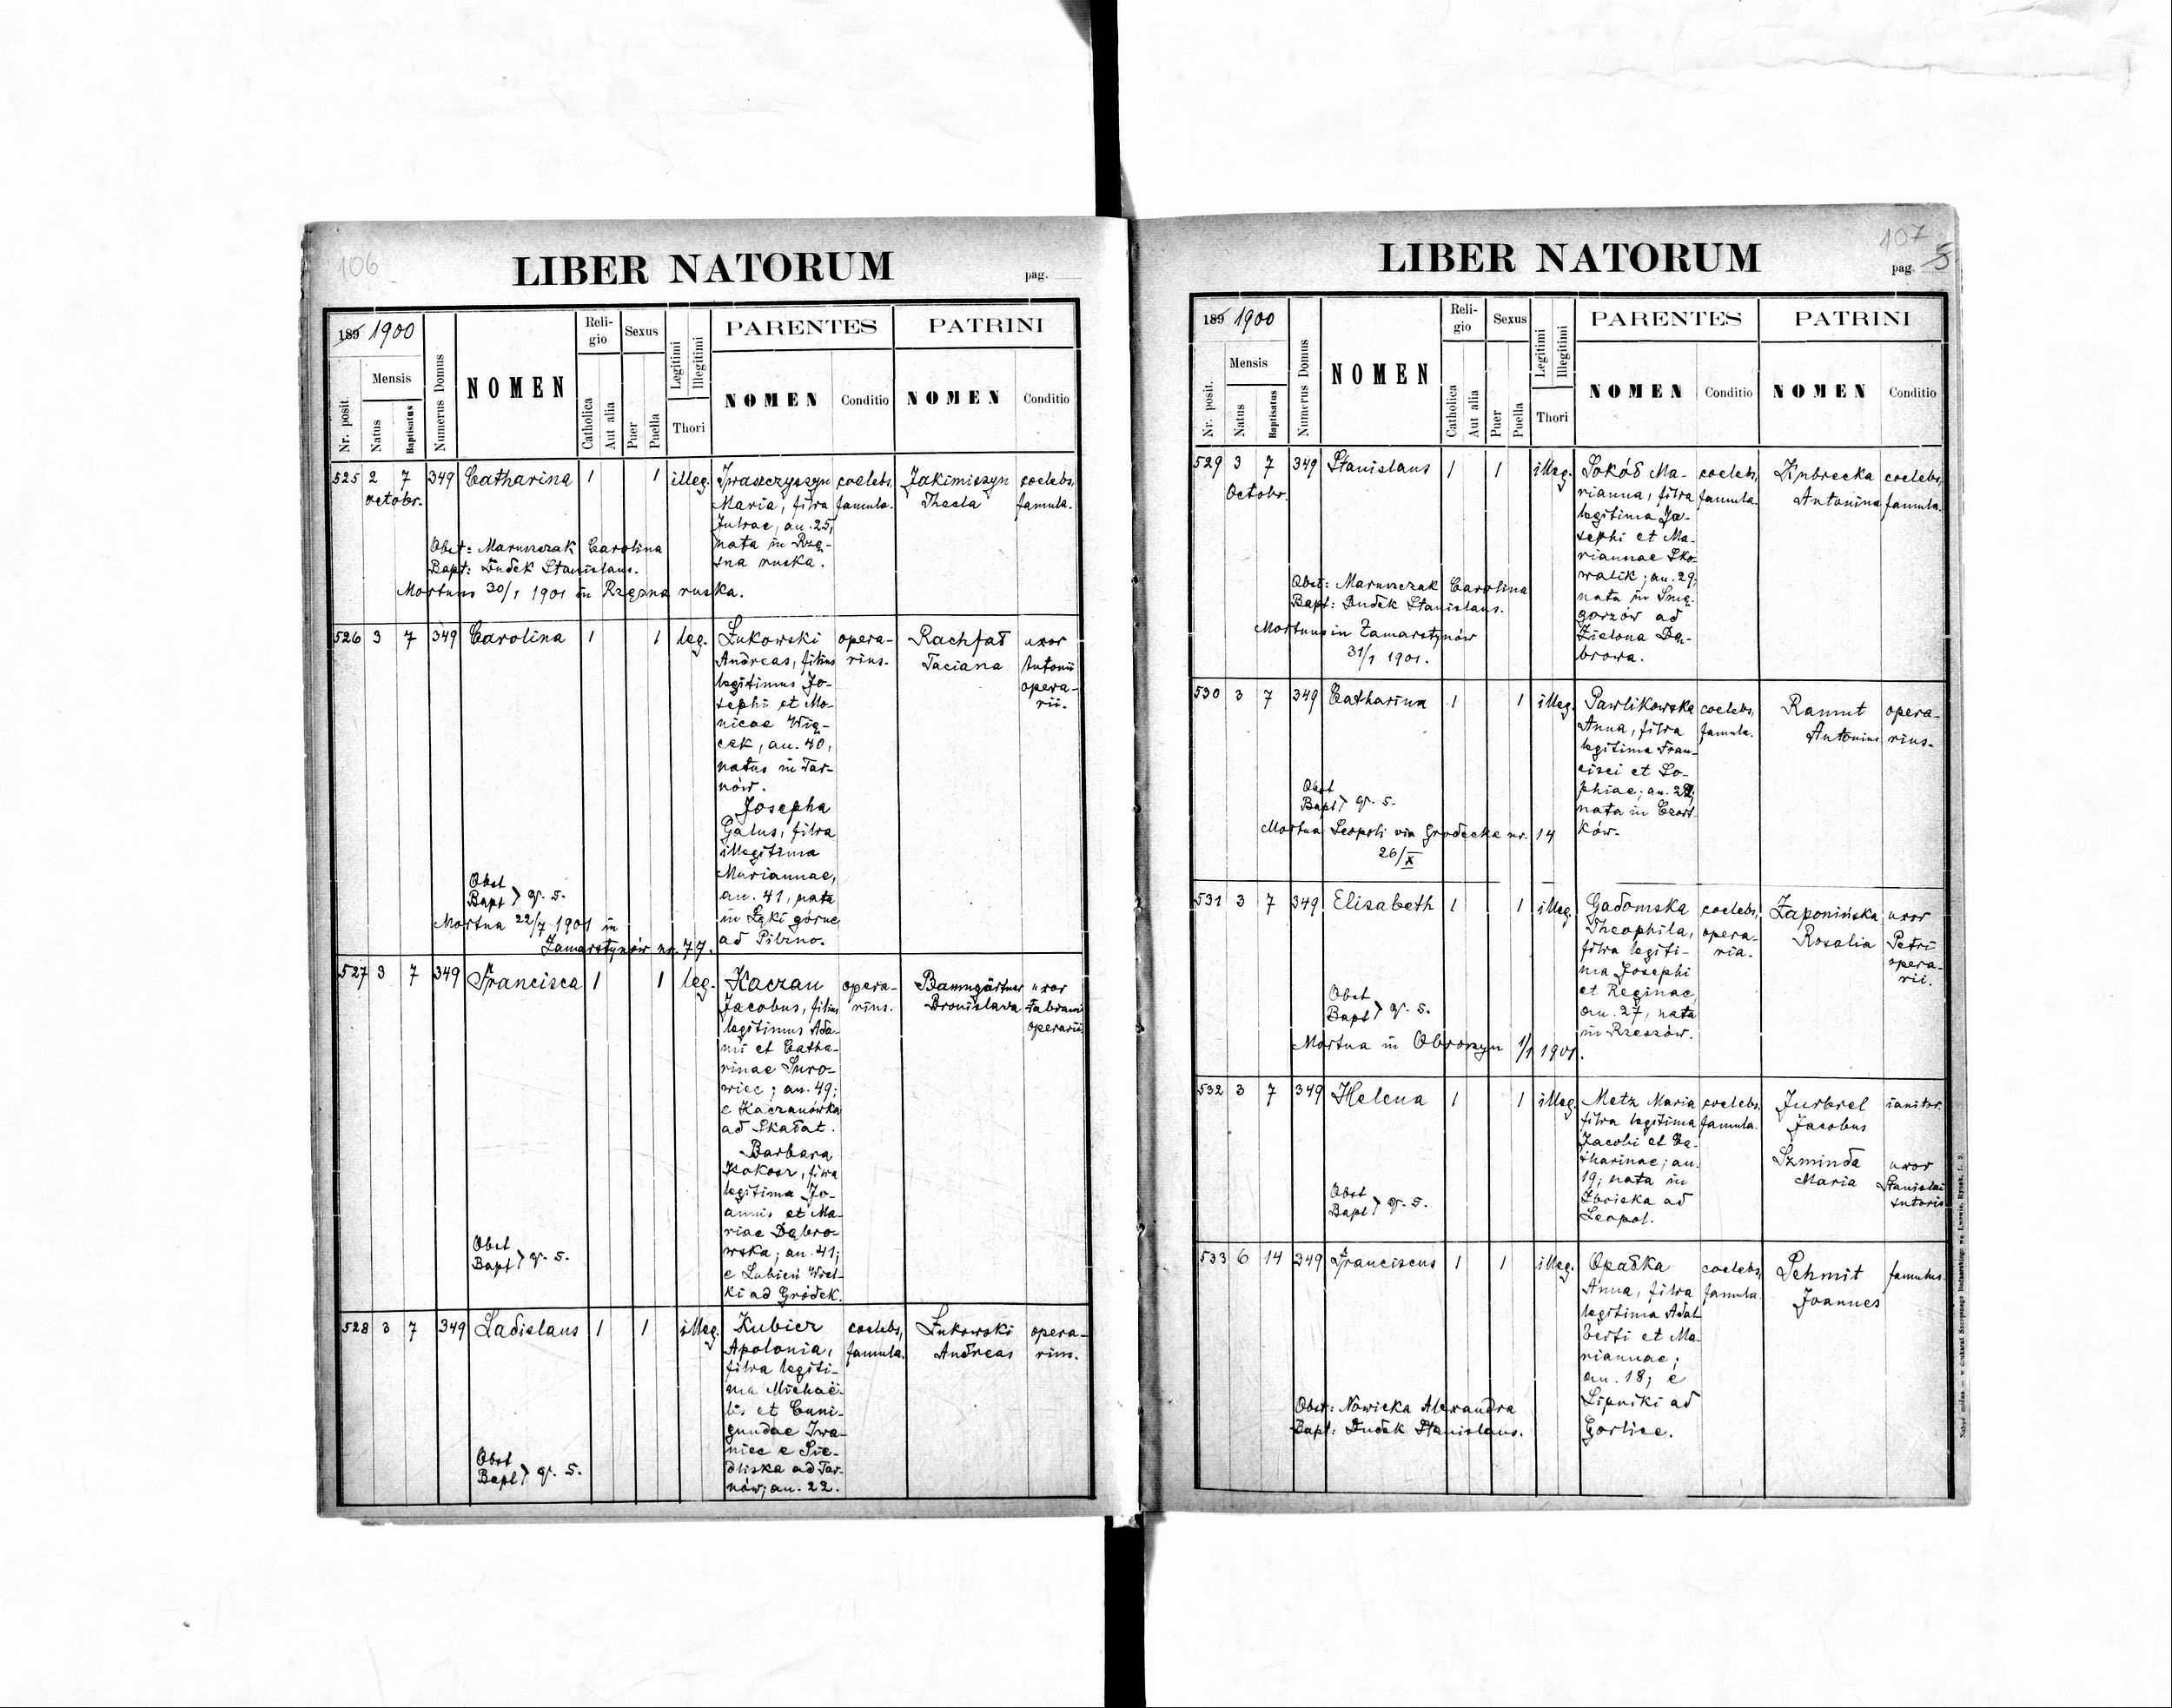 106
LIBER NATORUM
pag.
189 1900
Nr. posit.
Mensis
Natus
Baptisatus
Numerus Domus
NOMEN
Reli-
gio
Catholica
Aut alia
Sexus
Puer
Puella
Legitimi
Illegitimi
Thori
PARENTES
NOMEN
Conditio
PATRINI
NOMEN
Conditio
525 2 7 349 Catharina 1 1 illeg.
octobr.
Iwaszczyszyn
Maria, filia
Juliae, an. 25,
nata in Rzę-
sna ruska.
coelebs,
famula.
Jakimiszyn
Thecla
coelebs,
famula.
Obst: Maruszczak Carolina
Bapt: Dudek Stanislaus.
Mortuus 30/1 1901 in Rzęsna ruska.
526 3 7 349 Carolina 1 1 leg.
Żukowski
Andreas, filius
legitimus Jo-
sephi et Mo-
nicae Wię-
cek, an. 40,
natus in Tar-
nów.
Josepha
Galus, filia
illegitima
Mariannae,
an. 41, nata
in Łęki górne
ad Pilzno.
opera-
rius.
Rachfał
Taciana
uxor
Antonii
opera-
rii.
Obst
Bapt } qr. s.
Mortua 22/7 1901 in
Zamarstynów nr. 77.
527 3 7 349 Francisca 1 1 leg.
Kaczan
Jacobus, filius
legitimus Ada-
mi et Catha-
rinae Suro-
wiec; an. 49;
e Kaczanówka
ad Skałat.
Barbara
Kokosz, filia
legitima Jo-
annis et Ma-
riae Dąbro-
wska; an. 41;
e Lubień Wiel-
ki ad Gródek.
opera-
rius.
Baumgärtner
Bronislava
uxor
Fabiani
operarii
Obst
Bapt } qr. s.
528 3 7 349 Ladislaus 1 1 illeg.
Kubicz
Apolonia,
filia legiti-
ma Michaë-
lis et Cuni-
gundae Iwa-
niec e Sie-
dliska ad Tar-
nów; an. 22.
coelebs,
famula.
Żukowski
Andreas
opera-
rius.
Obst
Bapt } qr. s.
107
LIBER NATORUM
pag. 5
189 1900
Nr. posit.
Mensis
Natus
Baptisatus
Numerus Domus
NOMEN
Reli-
gio
Catholica
Aut alia
Sexus
Puer
Puella
Legitimi
Illegitimi
Thori
PARENTES
NOMEN
Conditio
PATRINI
NOMEN
Conditio
529 3 7 349 Stanislaus 1 1 illeg.
Octobr.
Sokół Ma-
rianna, filia
legitima Jo-
sephi et Ma-
riannae Sko-
walik; an. 29;
nata in Smę-
gorzów ad
Zielona Dą-
browa.
coelebs,
famula.
Antonina
coelebs,
famula.
Obst: Maruszczak Carolina
Bapt: Dudek Stanislaus.
Mortuus in Zamarstynów
31/1 1901.
530 3 7 349 Catharina 1 1 illeg.
Pawlikowska
Anna, filia
legitima Fran-
cisci et So-
phiae; an. 22;
nata in Czort-
ków.
coelebs,
famula.
Ramut
Antonius
opera-
rius.
Obst
Bapt } qr. s.
Mortua Leopoli via Grodecka nr. 14
26/X
531 3 7 349 Elisabeth 1 1 illeg.
Gadomska
Theophila,
filia legiti-
ma Josephi
et Reginae,
an. 27, nata
in Rzeszów.
coelebs,
opera-
ria.
Zaponińska
Rosalia
uxor
Petri
opera-
rii.
Obst
Bapt } qr. s.
Mortua in Obroszyn 1/1 1901.
532 3 7 349 Helena 1 1 illeg.
Metz Maria
filia legitima
Jacobi et Ca-
tharinae; an.
19; nata in
Zboiska ad
Leopol.
coelebs,
famula.
Jurbrel
Jacobus
ianitor.
Szminda
Maria
uxor
Stanislai
sutoris
Obst
Bapt } qr. s.
533 6 14 349 Franciscus 1 1 illeg.
Opałka
Anna, filia
legitima Adal-
berti et Ma-
riannae;
an. 18; e
Lipniki ad
Gorlice.
coelebs,
famula.
Schmit
Joannes
famulus.
Obst: Nowicka Alexandra
Bapt: Dudek Stanislaus.